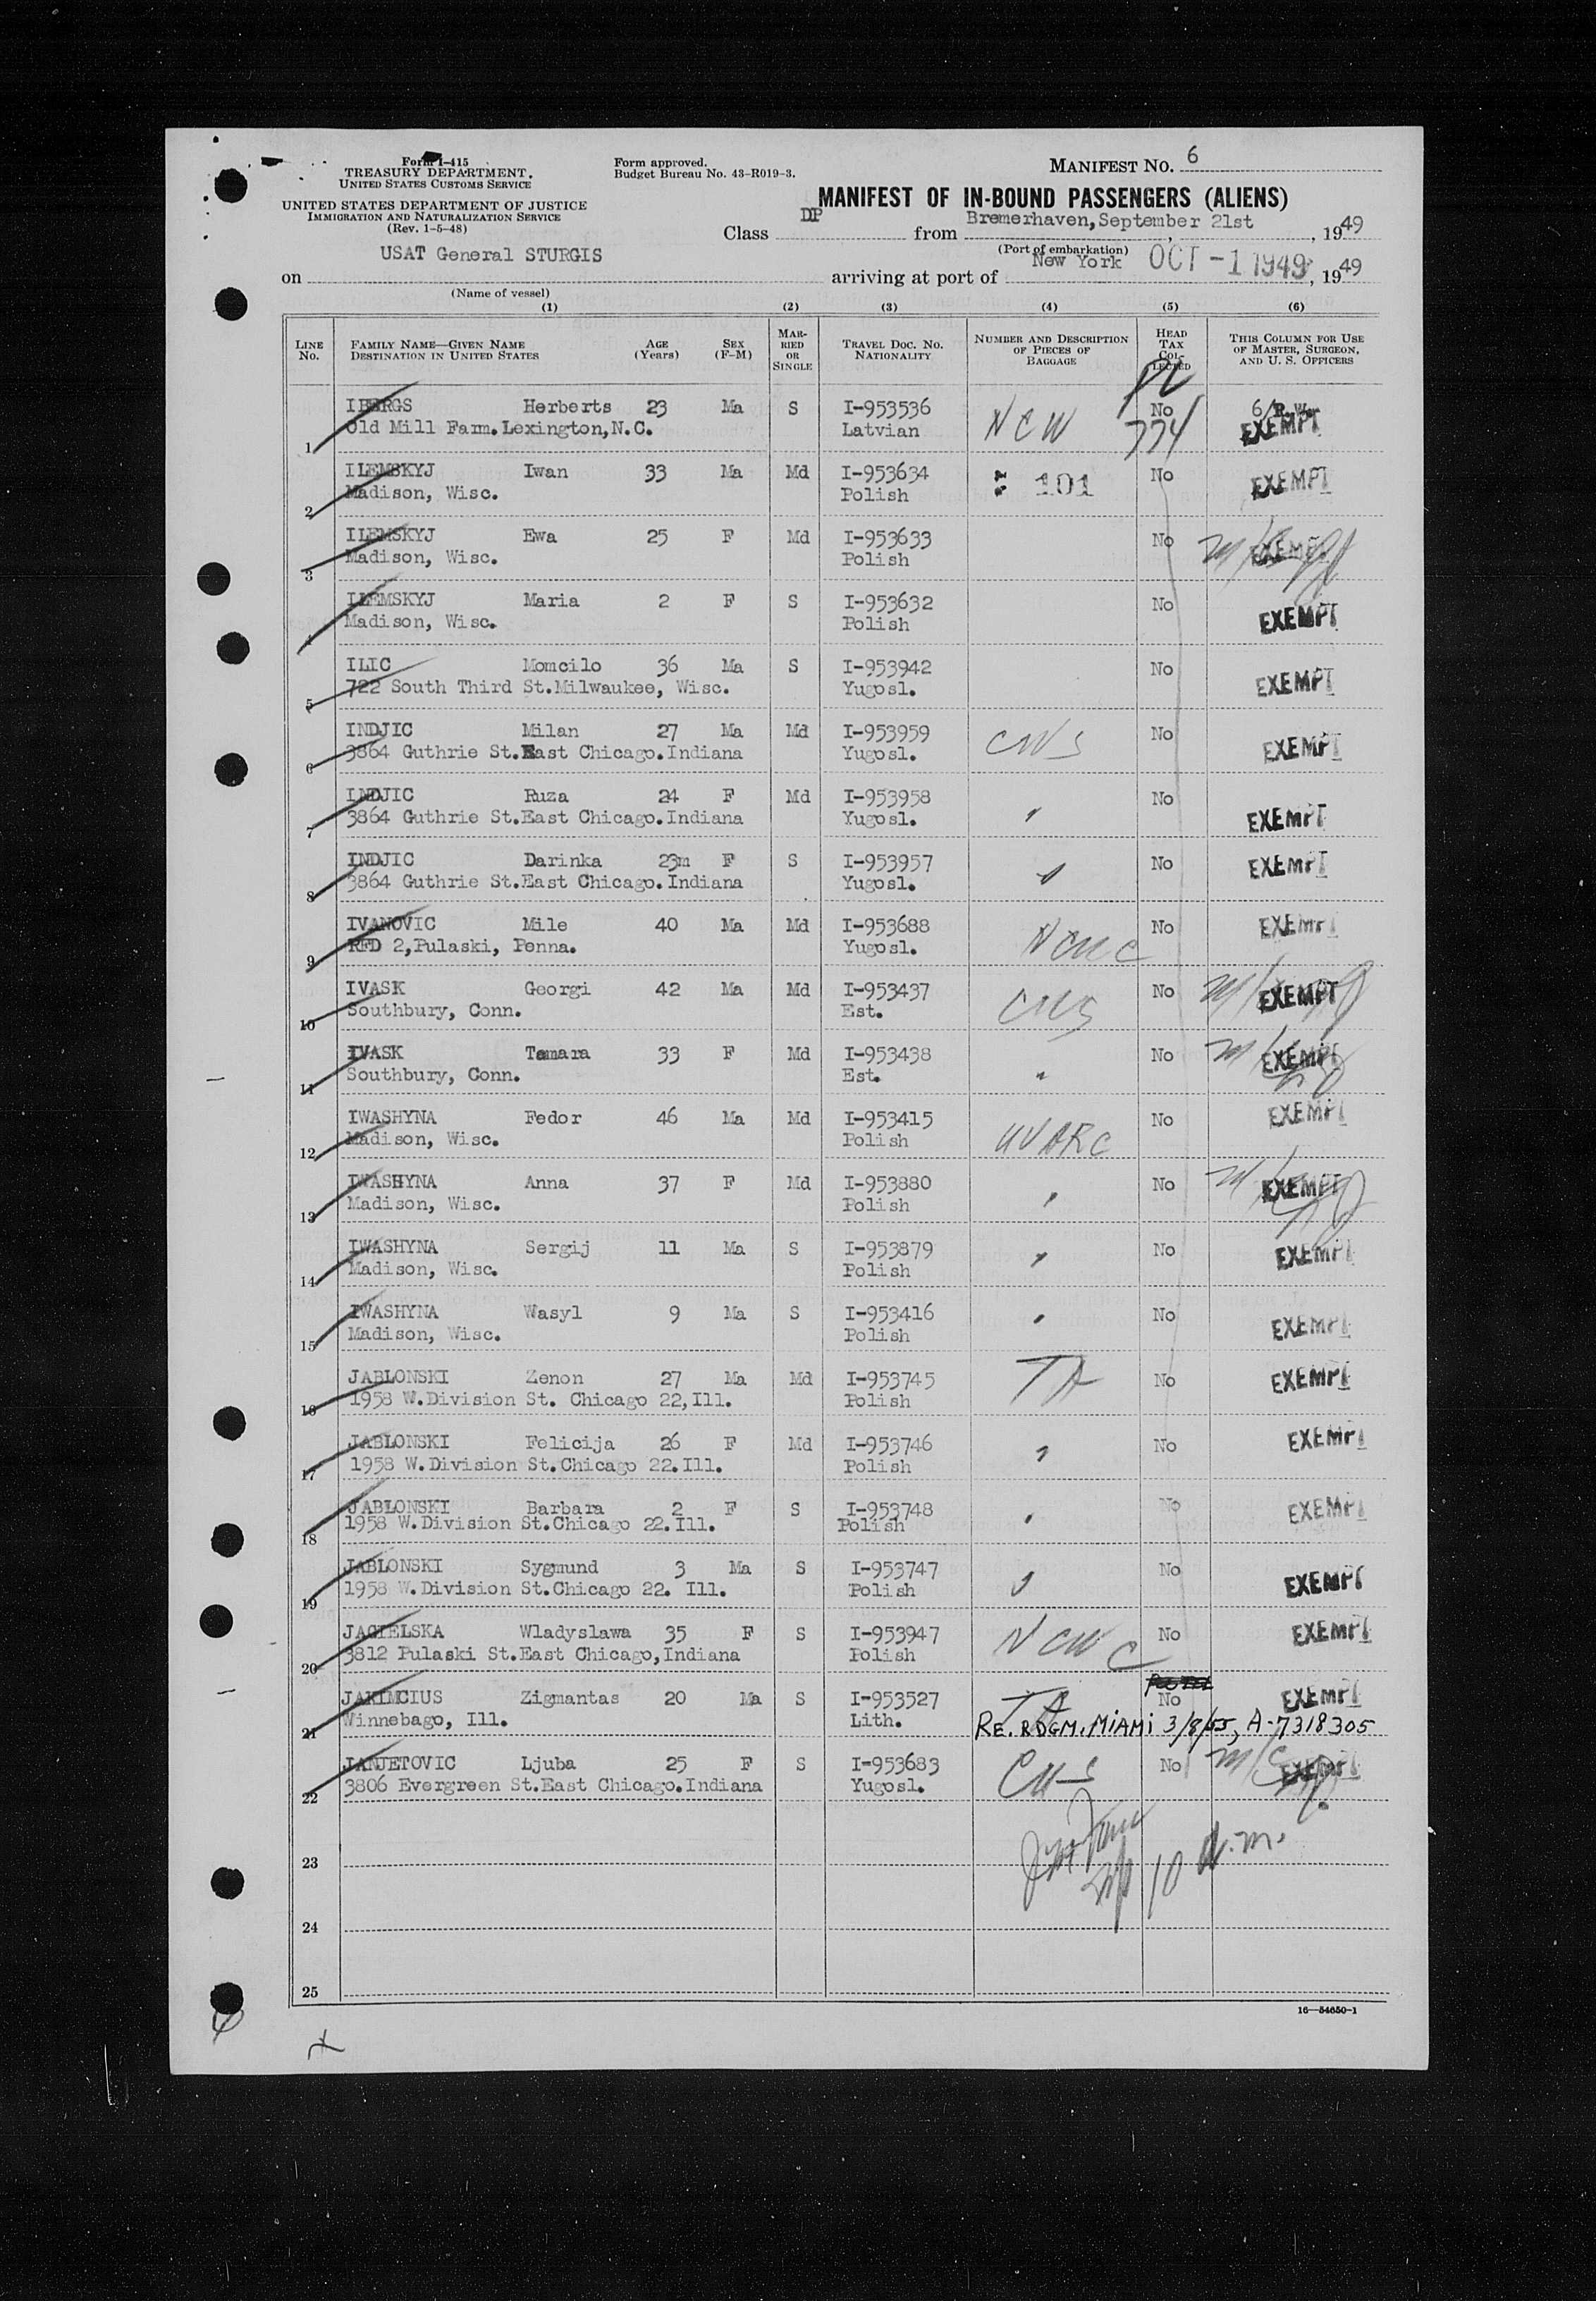 Form I-415
TREASURY DEPARTMENT.
UNITED STATES CUSTOMS SERVICE
UNITED STATES DEPARTMENT OF JUSTICE
IMMIGRATION AND NATURALIZATION SERVICE
(Rev. 1-5-48)
Form approved.
Budget Bureau No. 43-R019-3.
MANIFEST NO. 6
MANIFEST OF IN-BOUND PASSENGERS (ALIENS)
Class DP from Bremerhaven, September 21st, 1949
(Port of embarkation)
on USAT General STURGIS arriving at port of New York OCT -1 1949, 1949
(Name of vessel)
(1) (2) (3) (4) (5) (6)
LINE NO. FAMILY NAME—GIVEN NAME DESTINATION IN UNITED STATES AGE (Years) SEX (F-M) MARRIED OR SINGLE TRAVEL DOC. NO. NATIONALITY NUMBER AND DESCRIPTION OF PIECES OF BAGGAGE HEAD TAX COLLECTED THIS COLUMN FOR USE OF MASTER, SURGEON, AND U. S. OFFICERS
IBERGS Herberts 23 Ma S I-953536 NCW No 774 EXEMPT
1 Old Mill Farm. Lexington, N.C. Latvian
ILEMSKYJ Iwan 33 Ma Md I-953634 101 No EXEMPT
2 Madison, Wisc. Polish
ILEMSKYJ Ewa 25 F Md I-953633 No EXEMPT
3 Madison, Wisc. Polish
ILEMSKYJ Maria 2 F S I-953632 No EXEMPT
4 Madison, Wisc. Polish
ILIC Momcilo 36 Ma S I-953942 No EXEMPT
5 722 South Third St.Milwaukee, Wisc. Yugosl.
INDJIC Milan 27 Ma Md I-953959 CWS No EXEMPT
6 3864 Guthrie St.East Chicago.Indiana Yugosl.
INDJIC Ruza 24 F Md I-953958 No EXEMPT
7 3864 Guthrie St.East Chicago.Indiana Yugosl.
INDJIC Darinka 23m F S I-953957 No EXEMPT
8 3864 Guthrie St.East Chicago.Indiana Yugosl.
IVANOVIC Mile 40 Ma Md I-953688 NCWC No EXEMPT
9 RFD 2,Pulaski, Penna. Yugosl.
IVASK Georgi 42 Ma Md I-953437 CWS No EXEMPT
10 Southbury, Conn. Est.
IVASK Tamara 33 F Md I-953438 " No EXEMPT
11 Southbury, Conn. Est.
IWASHYNA Fedor 46 Ma Md I-953415 UUARC No EXEMPT
12 Madison, Wisc. Polish
IWASHYNA Anna 37 F Md I-953880 No EXEMPT
13 Madison, Wisc. Polish
IWASHYNA Sergij 11 Ma S I-953879 No EXEMPT
14 Madison, Wisc. Polish
IWASHYNA Wasyl 9 Ma S I-953416 No EXEMPT
15 Madison, Wisc. Polish
JABLONSKI Zenon 27 Ma Md I-953745 TA No EXEMPT
16 1958 W.Division St. Chicago 22,Ill. Polish
JABLONSKI Felicija 26 F Md I-953746 No EXEMPT
17 1958 W.Division St.Chicago 22.Ill. Polish
JABLONSKI Barbara 2 F S I-953748 No EXEMPT
18 1958 W.Division St.Chicago 22.Ill. Polish
JABLONSKI Sygmund 3 Ma S I-953747 No EXEMPT
19 1958 W.Division St.Chicago 22. Ill. Polish
JAGIELSKA Wladyslawa 35 F S I-953947 NCWC No EXEMPT
20 3812 Pulaski St.East Chicago,Indiana Polish
JAKIMCIUS Zigmantas 20 Ma S I-953527 TA No EXEMPT
21 Winnebago, Ill. Lith. RE. RDGM. MIAMI 3/8/55, A-7318305
JANJETOVIC Ljuba 25 F S I-953683 CWS No EXEMPT
22 3806 Evergreen St.East Chicago.Indiana Yugosl.
23 10 A.m.
24
25
16—54650-1